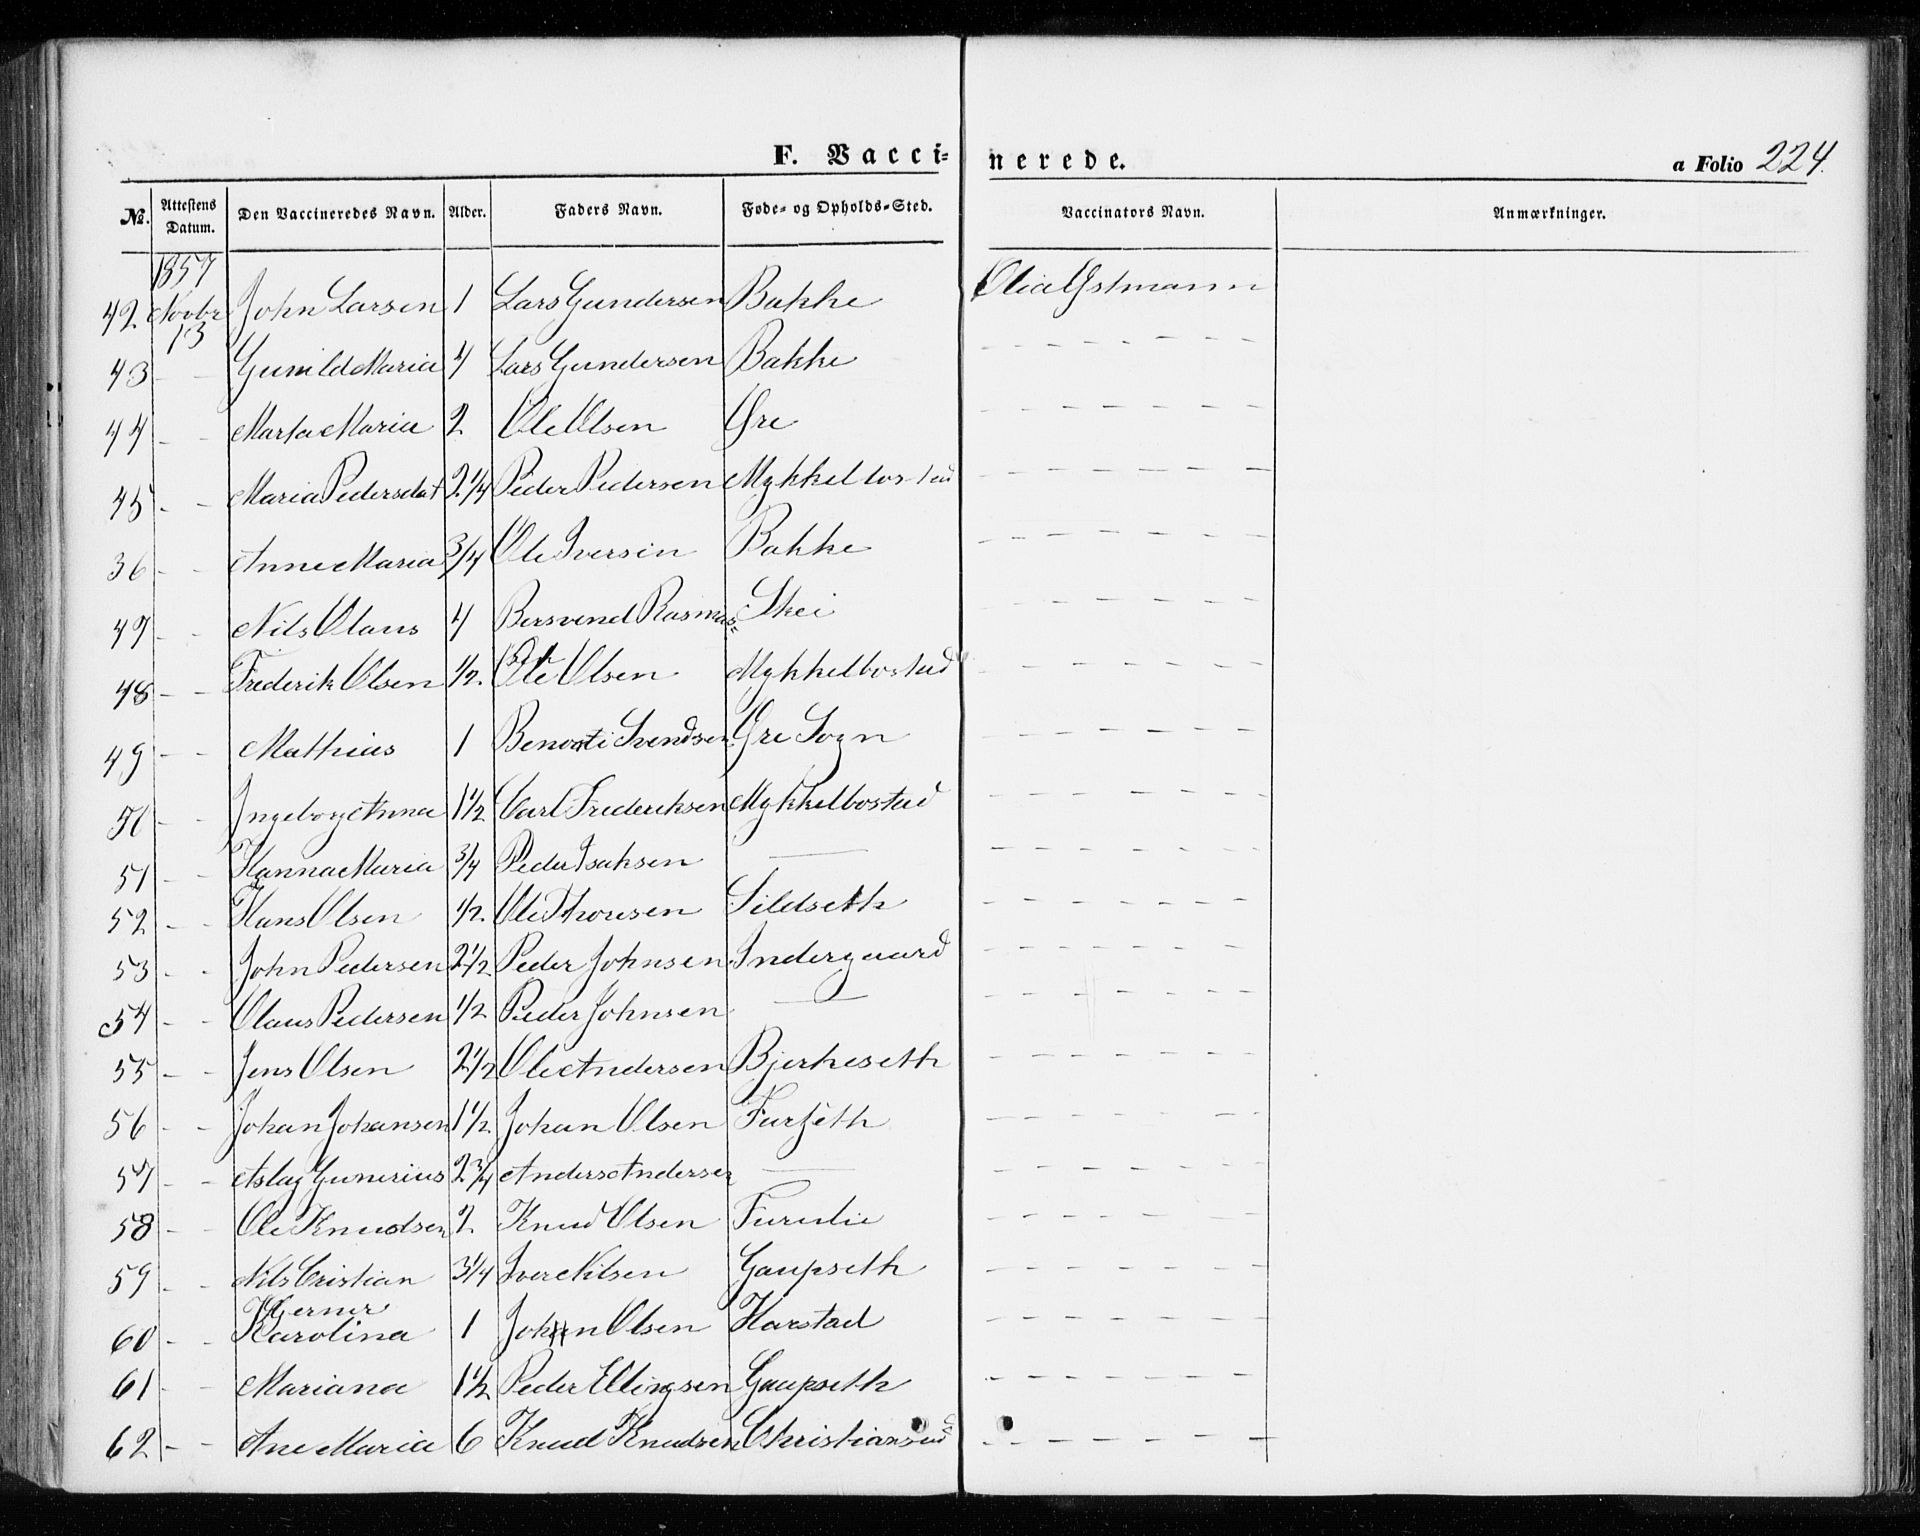 F. Vacci-
nerede.
a Folio 224.
No. Attestens Datum. Den Vaccineredes Navn. Alder. Faders Navn. Føde- og Opholds-Sted. Vaccinators Navn. Anmærkninger.
1857
42 Novbr 13 John Larsen 1 Lars Gundersen Bakke Østmann
43 - - Gunild Maria 4 Lars Gundersen Bakke - - - - - -
44 - - Marta Maria 2 Ole Olsen Øre - - - - - -
45 - - Maria Pedersdat 2 1/4 Peder Pedersen Mykkelbostad - - - - - -
36 - - Anne Maria 3/4 Ole Iversen Bakke - - - - - -
47 - - Nils Olaus 4 Bersvend Rasmus- Skei - - - - - -
48 - - Frederik Olsen 1/2 Ole Olsen Mykkelbostad -
49 - - Mathias 1 Svendsen Øre Sogn - - - - - -
50 - - Ingeborg Anna 1 1/2 Carl Frederiksen Mykkelbostad - - - - - -
51 - - Hanna Maria 3/4 Peder Isaksen — - - - - - -
52 - - Hans Olsen 1/2 Ole Thoresen Sildseth - - - - - -
53 - - John Pedersen 2 1/2 Peder Johnsen Indergaard - - - - - -
54 - - Olaus Pedersen 1/2 Peder Johnsen — - - - - - -
55 - - Jens Olsen 2 1/2 Ole Andersen Bjerkeseth - - - - - -
56 - - Johan Johansen 1 1/2 Johan Olsen Furseth - - - - - -
57 - - Aslag Gunerius 2 3/4 Anders Andersen — - - - - - -
58 - - Ole Knudsen 2 Knud Olsen Furulie - - - - - -
59 - - Nils Cristian 3 1/4 Iver Nilsen Gaupseth - - - - - -
Gerner
60 - - Karolina 1 John Olsen Harstad - - - - - -
61 - - Mariana 1 1/2 Peder Ellingsen Gaupseth - - - - - -
62 - - Ane Maria 6 Knud Knudsen Christiansund - - - - - -